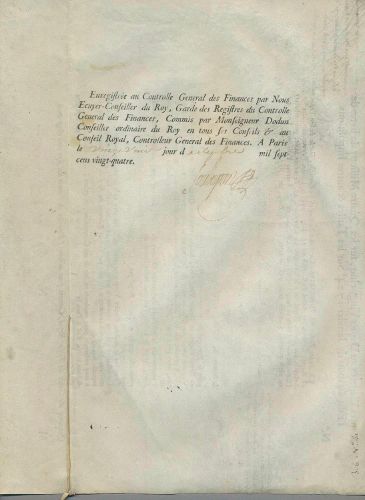 Enregistrée au Controlle General des Finances par Nous
Ecuyer-Conseiller du Roy, Garde des Registres du Controlle
General des Finances, Commis par Monseigneur Dodun
Conseiller ordinaire du Roy en tous ses Conseils & au
Conseil Royal, Controlleur General des Finances. A Paris
le jour d mil sept
cens vingt-quatre.